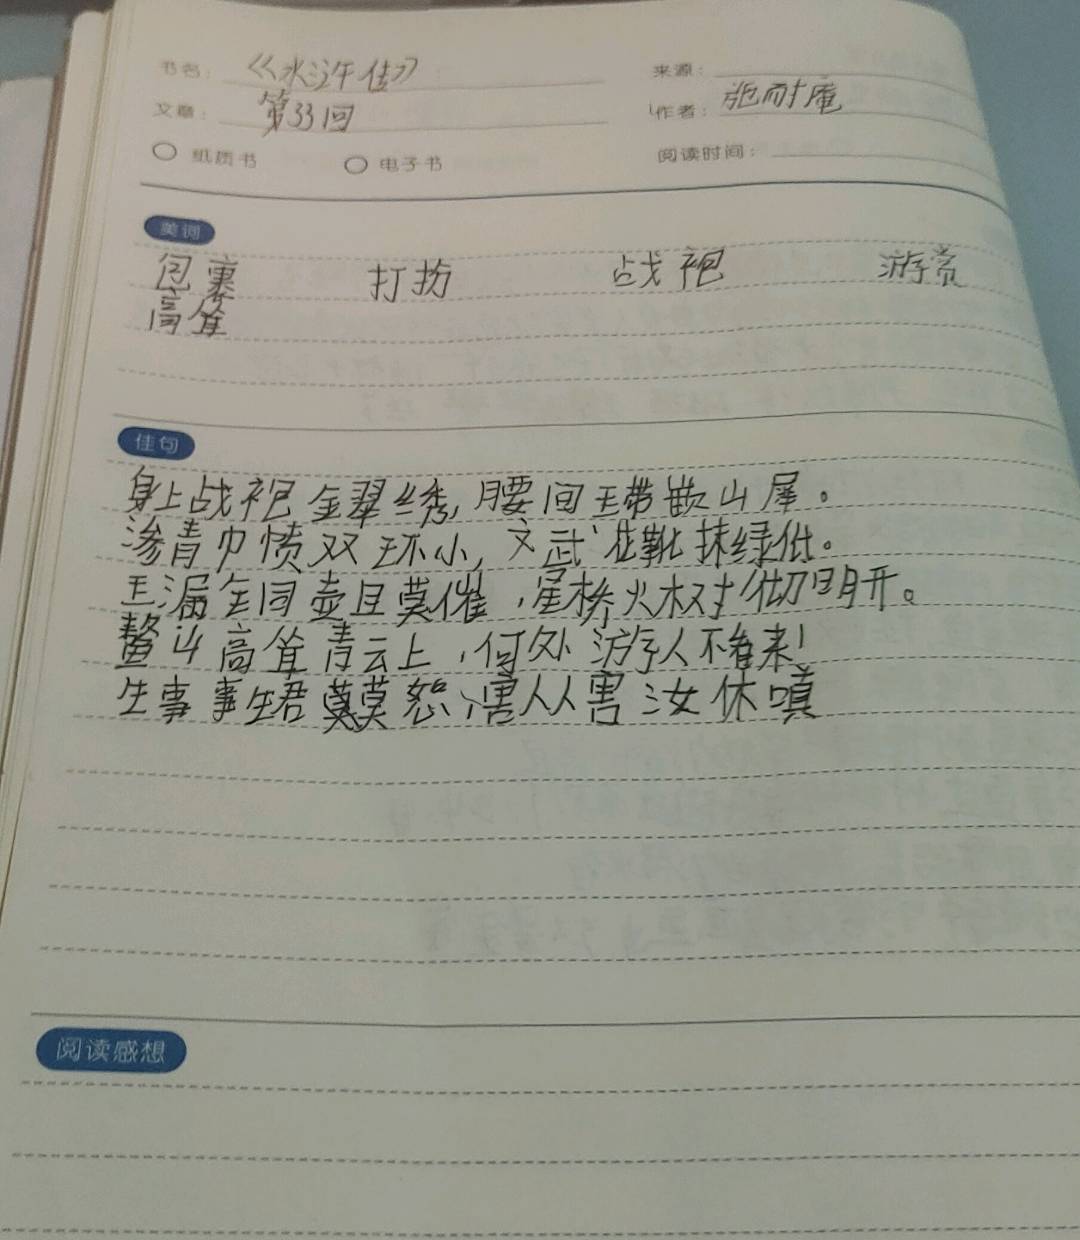 书名：《水浒传》
来源：
文章：第33回
作者：施耐庵
纸质书 电子书 阅读时间：
美词
包裹 打扮 战袍 游赏
高耸
佳句
身上战袍金翠绣,腰间玉带嵌山犀。
渗青巾帻双环小,文武花靴抹绿低。
玉漏铜壶且莫催,星桥火树彻明开。
鳌山高耸青云上,何处游人不看来!
生事事生君莫怨,害人人害汝休嗔
阅读感想